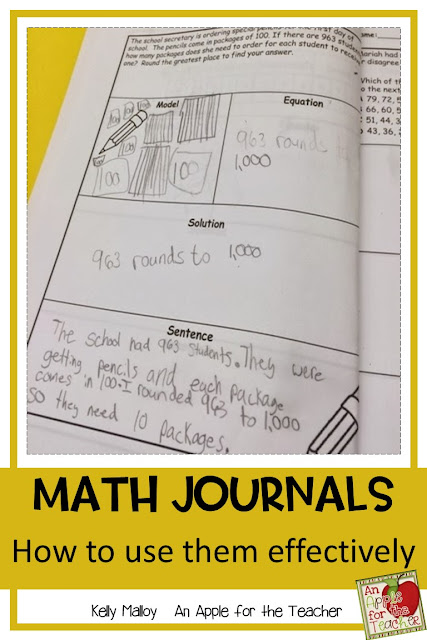 The school secretary is ordering special pencils for the first day of
school. The pencils come in packages of 100. If there are 963 students
how many packages does she need to order for each student to receive
one? Round the greatest place to find your answer.
Model
100
100
100
100
100
Equation
963 rounds
1,000
Solution
963 rounds to 1,000
Sentence
The school had 963 students. They were
getting pencils and each package
comes in 100. I rounded 963 to 1,000
so they need 10 packages.
ame:
ariah had
r disagree
Which of th
o the next
79, 72, 5
66, 60, 5
51, 44, 3
43, 36, 
MATH JOURNALS
How to use them effectively
Kelly Malloy An Apple for the Teacher
An
Apple
for the
Teacher